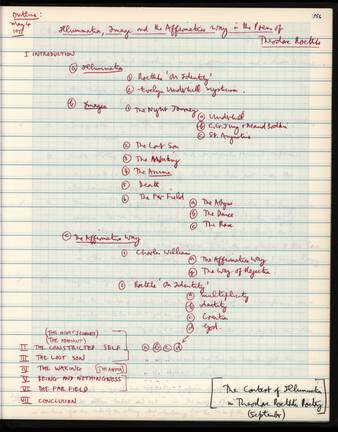 Outline:
May 4
156
Illumination, Image and the Affirmative Way in the Poems of
Theodore Roethke
I INTRODUCTION
(a) Illumination
(1) Roethke 'On Identity'
(2) Evelyn Underhill Mysticism.
(b) Images
(1) The Night Journey
(a) Underhill
(b) C.G. Jung & Maud Bodkin
(c) St. Augustine
The Lost Son
The
The Anima
Death
The Far Field
(a) The Abyss
(b) The Dance
(c) The Rose
(c) The Affirmative Way
(1) Charles Williams
(a) The Affirmative Way
(b) The Way of Rejection
Roethke 'On Identity'
(a) Multiplicity
(b) Identity
(c) Creation
(d) God.
(THE NIGHT JOURNEY)
II THE CONSTRICTED SELF (a) (b) (c) (d)
III THE LOST SON
IV THE WAKING (THE ANIMA)
V BEING AND NOTHINGNESS
VI THE FAR FIELD
VII CONCLUSION
The Context of Illumination
in Theodore Roethke's Poetry
(September)